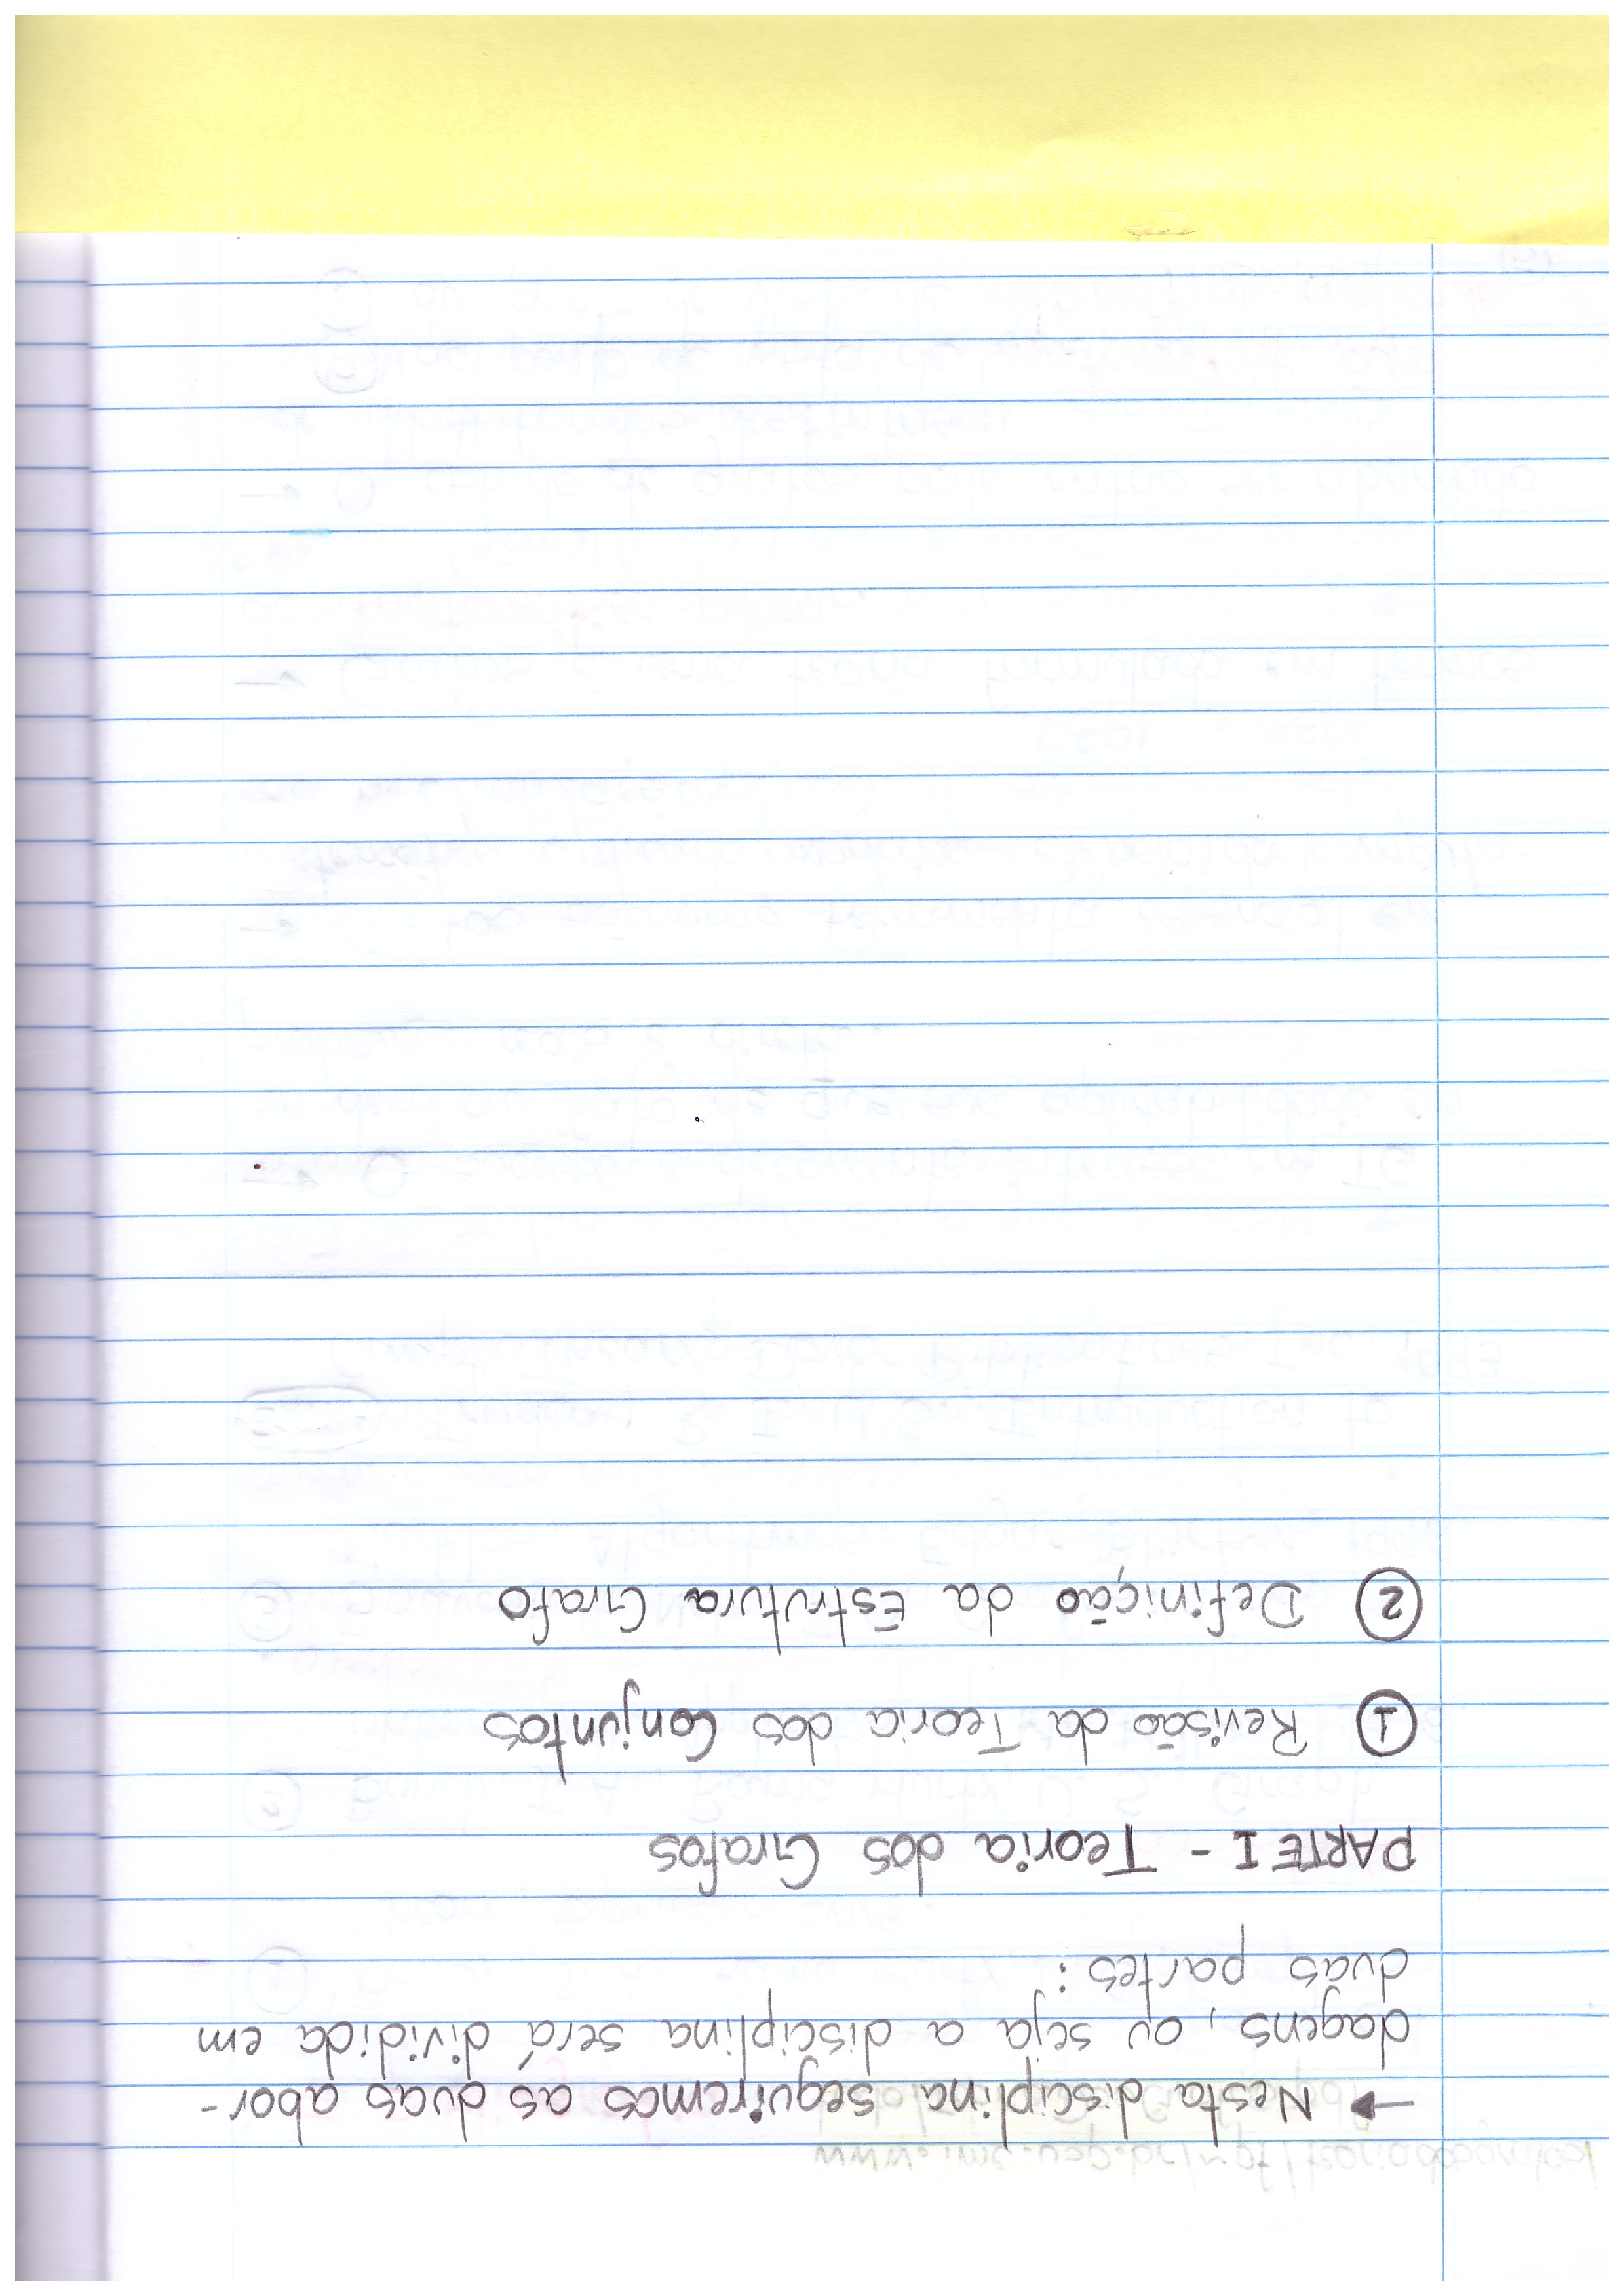 → Nesta disciplina seguiremos as duas abor-
dagens, ou seja a disciplina será dividida em
duas partes:
PARTE I - Teoria dos Grafos
① Revisão da Teoria dos Conjuntos
② Definição da Estrutura Grafo